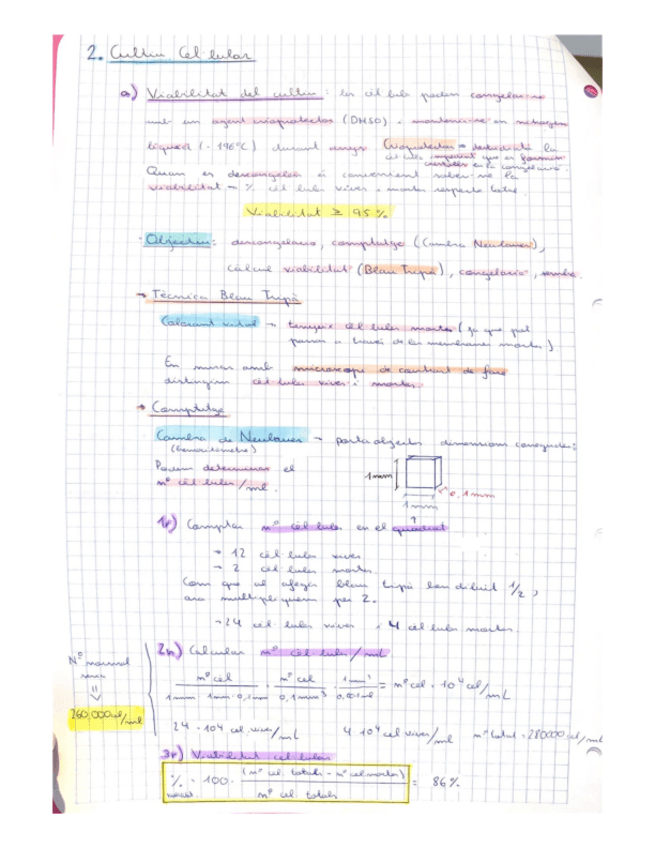 2. Cultiu Cel·lular
a) Viabilitat del cultiu : les cèl·lules poden congelar-se
amb un agent crioprotector (DMSO) i mantenir-se en nitrogen
líquid (-196ºC) durant anys. Crioprotector = la
cèl·lula
en la congelació.
Quan es descongelen és convenient saber-ne la
viabilitat → % cèl·lules vives i mortes respecte total.
Viabilitat ≥ 95%
· Objectiu: descongelació, comptatge (Cambra Neubauer),
càlcul viabilitat (Blau Tripà), congelació, sembra.
→ Tècnica Blau Tripà
Colorant vital → tenyeix cèl·lules mortes (ja que pot
passar a través de les membranes mortes)
En mirar amb microscopi de contrast de fase
distingim cèl·lules vives i mortes.
→ Comptatge
Cambra de Neubauer → portaobjectes dimensions conegudes:
(hemocitòmetre)
Podem determinar el
nº cèl·lules/mL.
1mm
0,1mm
1mm
1r) Comptar nº cèl·lules en el quadrat
→ 12 cèl·lules vives
→ 2 cèl·lules mortes
Com que al afegir blau tripà hem diluït 1/2,
ara multipliquem per 2.
→ 24 cèl·lules vives i 4 cèl·lules mortes.
2n) Calcular nº cèl·lules/mL
nº cèl / 1mm · 1mm · 0,1mm = nº cel / 0,1mm³ · 1mm³ / 0,001mL = nº cel · 10⁴ cel/mL
Nº normal
260.000 cel/mL
24 · 10⁴ cel vives/mL 4 · 10⁴ cel vives/mL nº total = 280000 cel/mL
3r) Viabilitat cel·lular
% = 100 · (nº cel. totals - nº cel mortes) / nº cel. totals = 86%